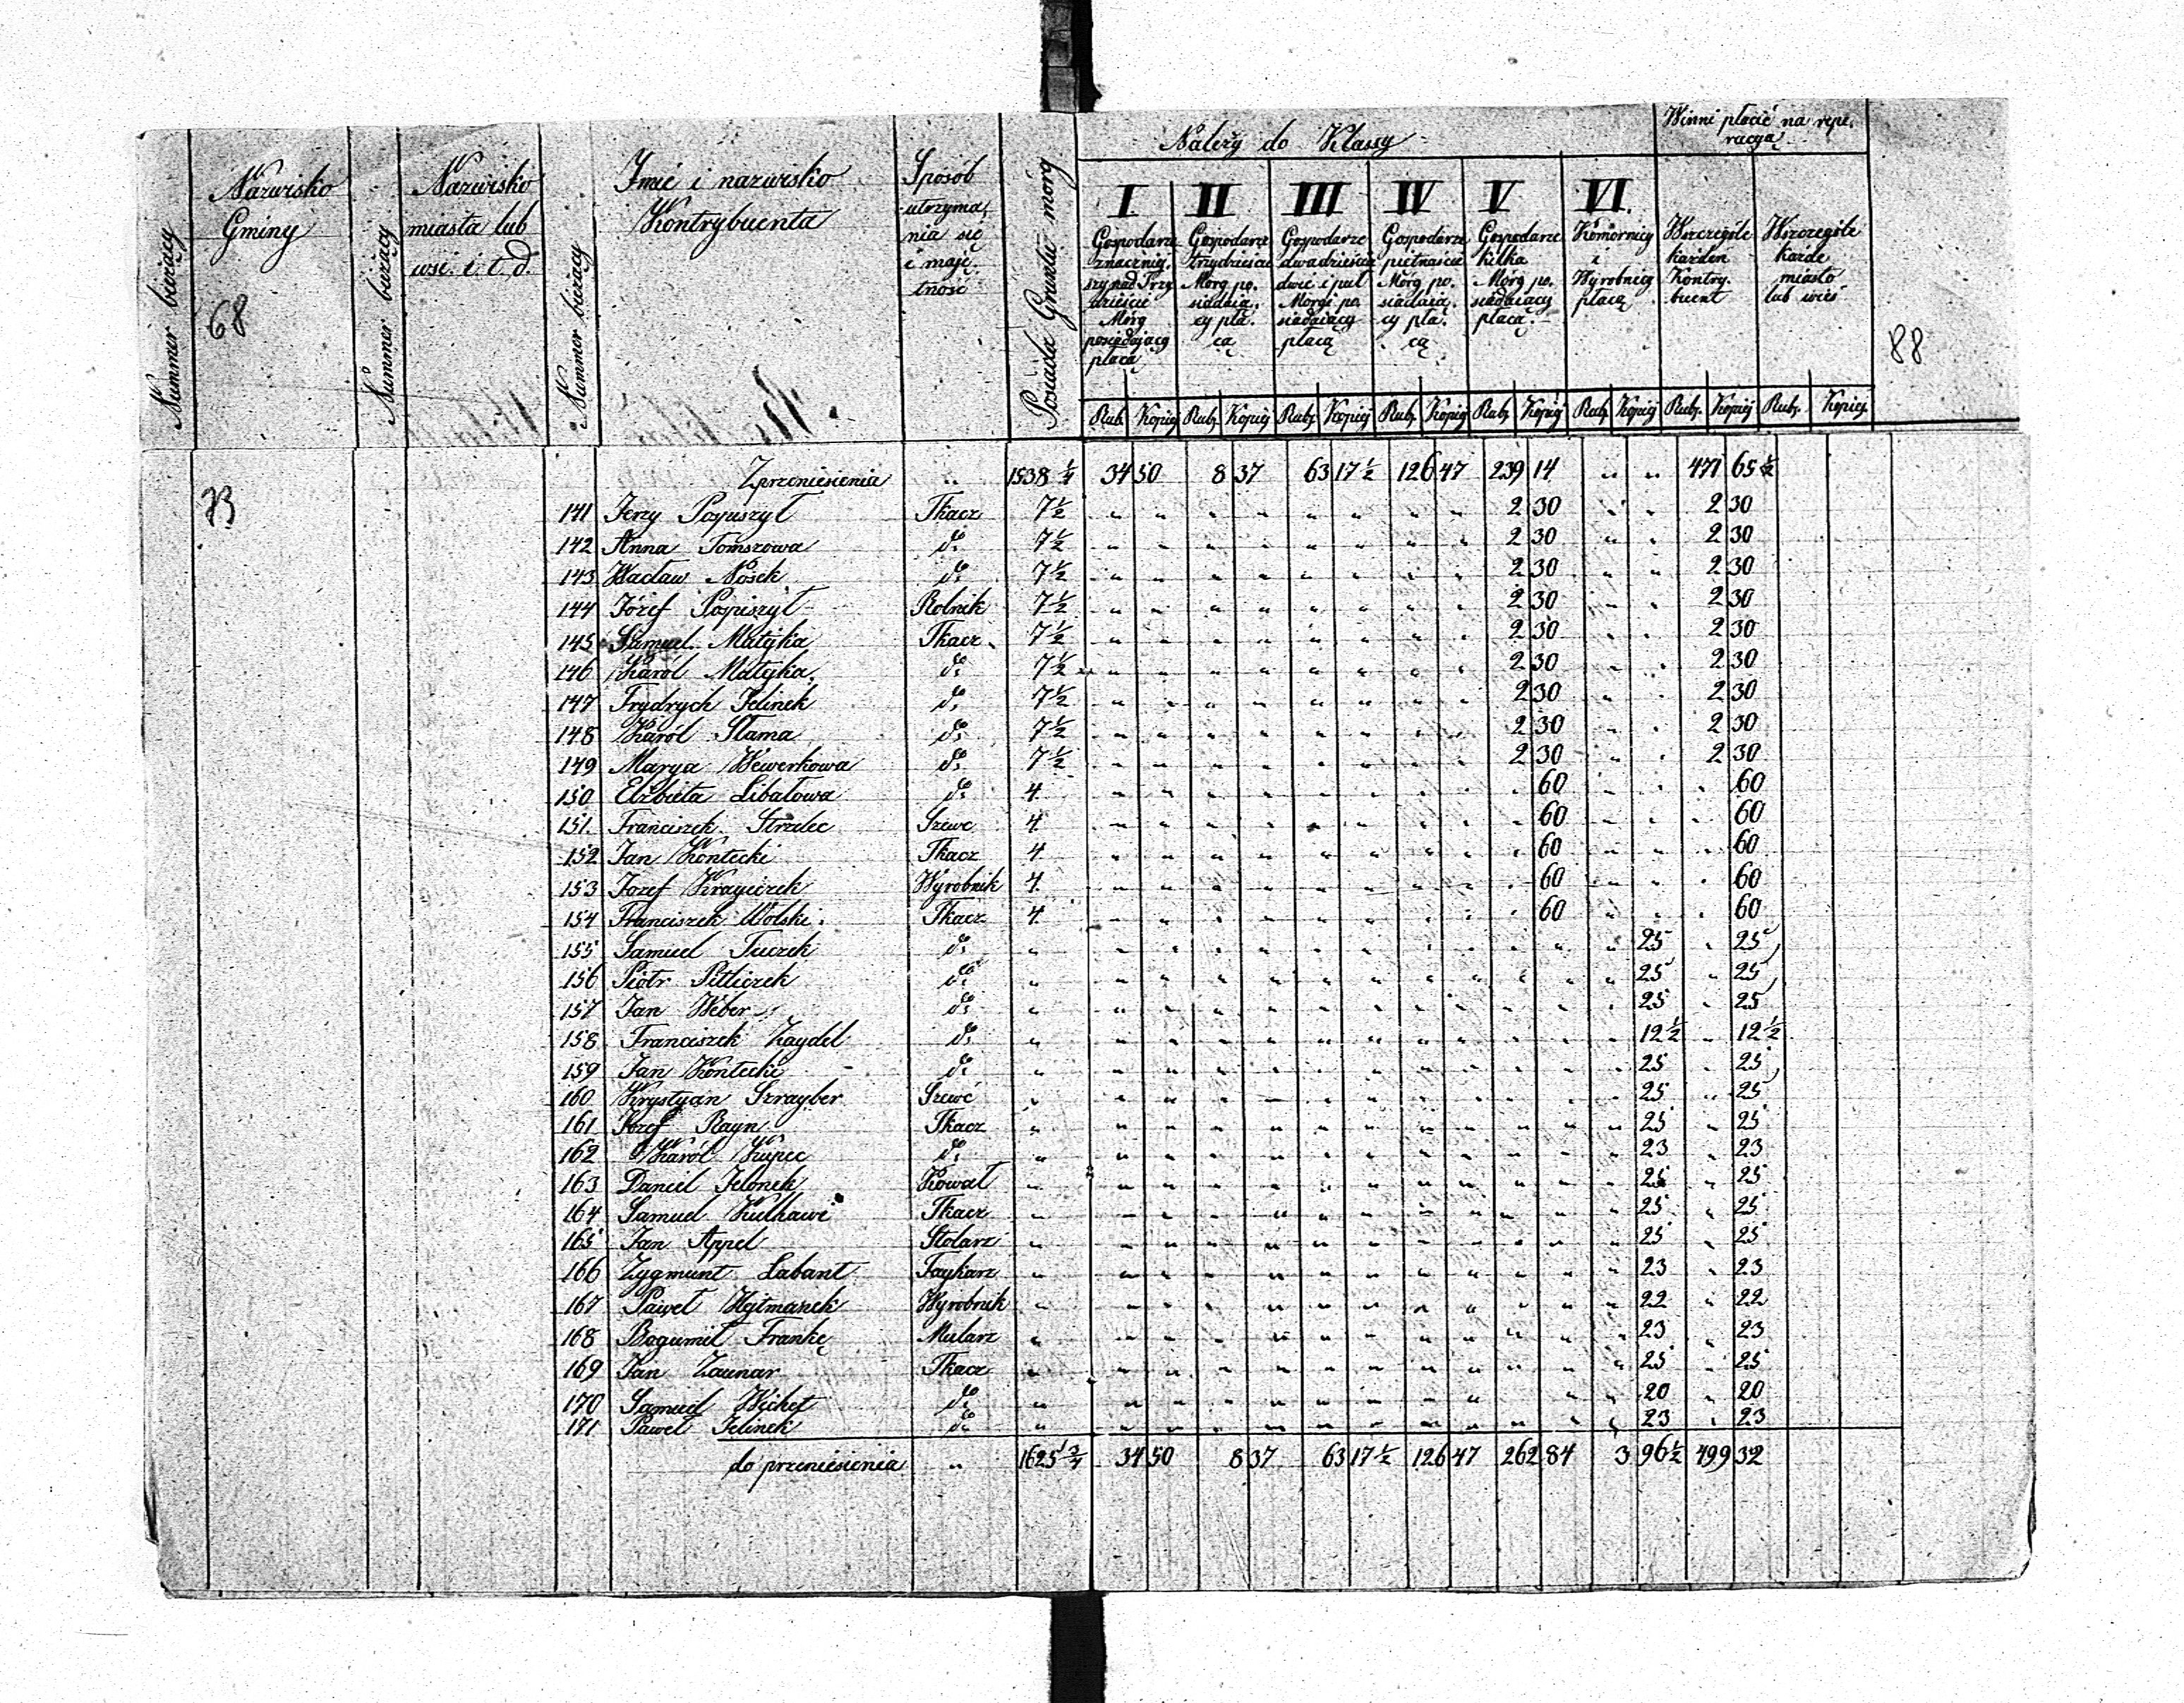 Należy do Klassy
Winni płacić na repe-
racyą
Nummer bieżący
Nazwisko
Gminy
68
Nummer bieżący
Nazwisko
miasta lub
wsi i. t. d.
Nummer bieżący
Imie i nazwisko
Kontrybuenta
Sposób
utrzyma,
nia się
i mają,
tność
Posiada Gruntu morg
I
Gospodarze
znaczniej,
szy nad Trzy
dzieście
Mórg
posiadający
płacą
II
Gospodarze
trzydzieście
Morg po,
siadają,
cy pła,
cą
III
Gospodarze
dwadzieścia
dwie i puł
Morgi po
siadaiący
płacą
IV
Gospodarze
pietnaście
Mórg po,
siadaią,
cy pła,
cą
V
Gospodarze
kilka
Mórg po,
siadaiący
płacą
VI.
Komornicy
i
Wyrobnicy
płacą
Wszczególe
każden
Kontry,
buent
Wszczególe
każde
miasto
lub wieś
88
Rub. Kopiej Rub. Kopiej Rub. Kopiej Rub. Kopiej Rub. Kopiej Rub. Kopiej Rub. Kopiej Rub. Kopiej
Zprzeniesienia " 1538 1/4 34 50 8 37 63 17 1/2 126 47 239 14 " " 471 65 1/2
141 Jerzy Pospiszył Tkacz 7 1/2 2 30 2 30
142 Anna Tomszowa do 7 1/2 2 30 2 30
143 Wacław Nosek do 7 1/2 2 30 2 30
144 Józef Pospiszył Rolnik 7 1/2 2 30 2 30
145 Samuel Matejka Tkacz 7 1/2 2 30 2 30
146 Karól Matejka do 7 1/2 2 30 2 30
147 Frydrych Jelinek do 7 1/2 2 30 2 30
148 Karól Slama do 7 1/2 2 30 2 30
149 Marya Wewerkowa do 7 1/2 2 30 2 30
150 Elżbieta Libalowa do 4 60 60
151. Franciszek Strzelec Szewc 4 60 60
152 Jan Kontecki Tkacz 4 60 60
153 Jozef Krayiczek Wyrobnik 4 60 60
154 Franciszek Wolski Tkacz 4 60 60
155 Samuel Tuczek do " 25 25
156 Piotr Pitliczek do " 25 25
157 Jan Weber do " 25 25
158 Franciszek Zaydel do " 12 1/2 12 1/2
159 Jan Kontecki do " 25 25
160 Krystyan Szrayber Szewc " 25 25
161 Józef Rayn Tkacz " 25 25
162 Karól Kupiec do " 23 23
163 Daniel Jelonek Kowal " 25 25
164 Samuel Kulhawi Tkacz " 25 25
165 Jan Appel Stolarz " 25 25
166 Zygmunt Labant Faykarz " 23 23
167 Paweł Hejtmanek Wyrobnik " 22 22
168 Bogumił Franke Mularz " 23 23
169 Jan Zaunar Tkacz " 25 25
170 Samuel Wichet do " 20 20
171 Paweł Jelinek do " 23 23
do przeniesienia " 1625 3/4 34 50 8 37 63 17 1/2 126 47 262 84 3 96 1/2 499 32